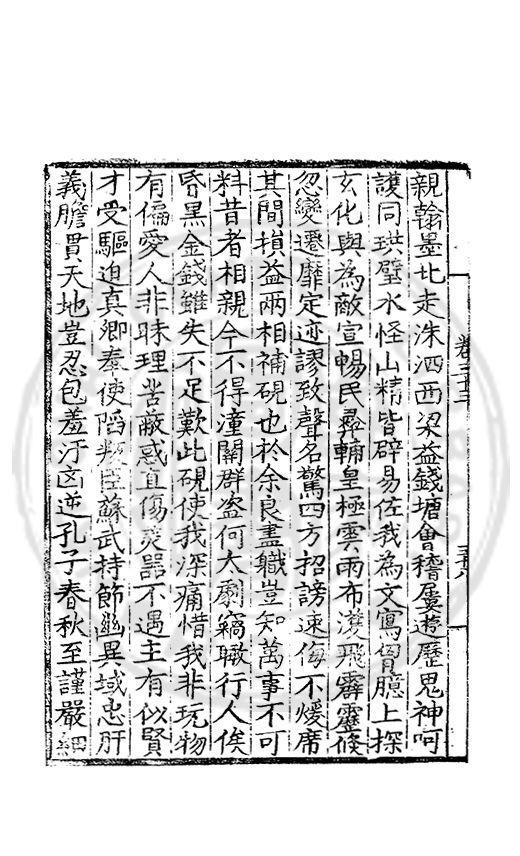 親翰墨北走洙泗西梁益錢塘會稽屢遊歷鬼神呵
護同珙璧水怪山精皆辟易佐我為文寫胷臆上探
玄化與為敵宣暢民彝輔皇極雲雨布濩飛霹靂倐
忽變遷靡定迹謬致聲名驚四方招謗速侮不煖席
其間損益兩相補硯也於余良盡職豈知萬事不可
料昔者相親今不得潼關群盗何太劇竊瞰行人俟
昏黑金錢雖失不足歎此硯使我深痛惜我非玩物
有偏愛人非昧理苦蔽惑直傷竒噐不遇主有似賢
才受驅迫真卿奉使陷叛臣蘇武持節幽異域忠肝
義膽貫天地豈忍包羞汙凶逆孔子春秋至謹嚴細
卷二十三
五十八